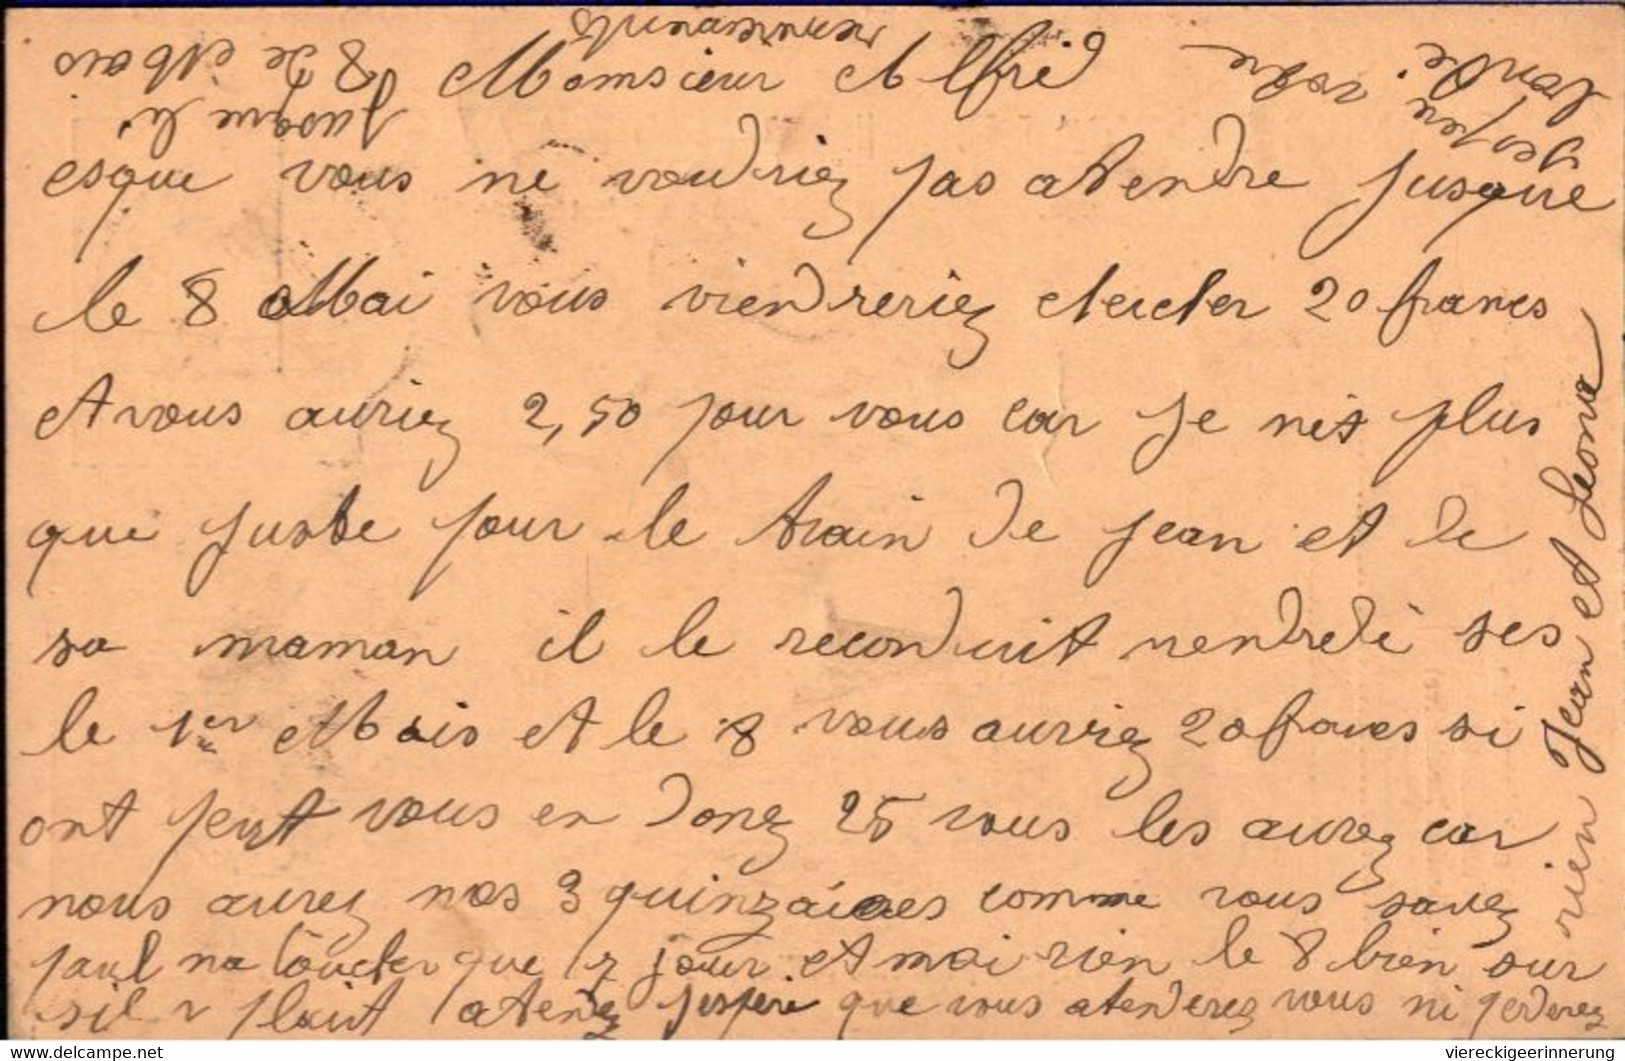 Monsieur Alfré
esque vous ne voudriez pas atendre jusque
le 8 Mai vous viendreriez chercher 20 francs
et vous auriez 2,50 pour vous car je néi plus
que juste pour le train de jean et le
sa maman il le reconduit vendredi ses
le 1er Mais et le 8 vous auriez 20 francs si
ont peut vous en donez 25 vous les aurez car
nous aurez nos 3 quinzaines comme vous savez
paul na toucher que 7 jour et moi rien le 8 bien sur
sil v plait atendez jesperé que vous atenderez vous ni perderez
rien Jean et Leona
jespere
votre
bonté
remerciements
jusque le
8 de Mais
delcampe.net
viereckigeerinnerung